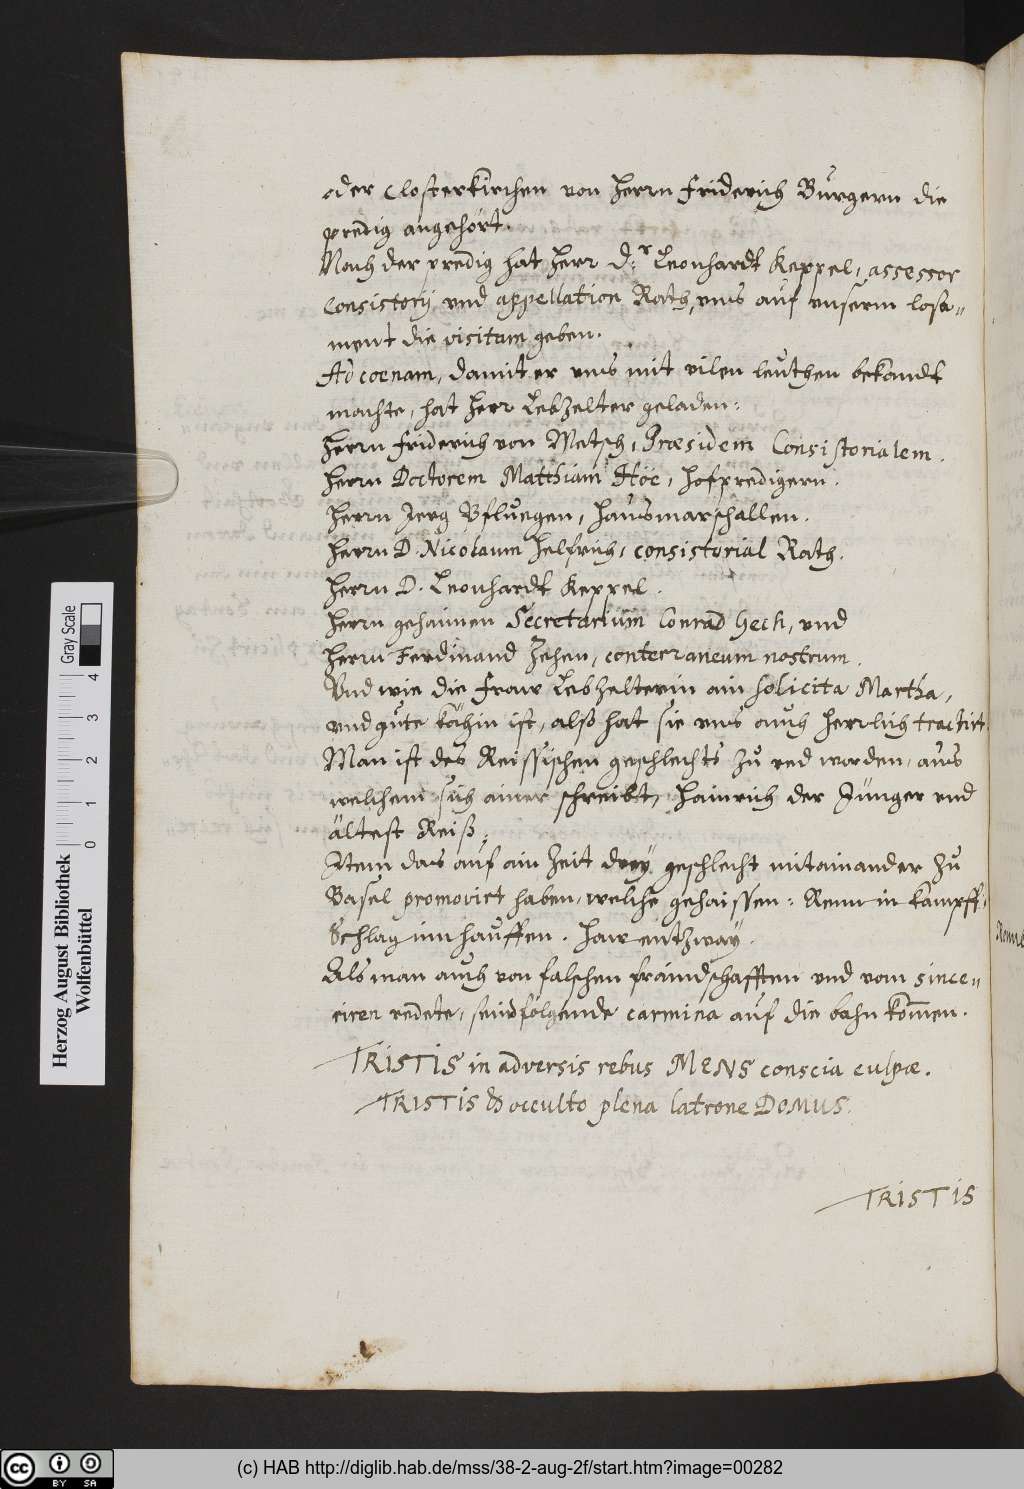 oder Closterkirchen von Herrn Friderich Burgern die
predig angehört.
Nach der predig hat Herr D.r Leonhardt Keppel, assessor
Consistorij und appellation Rath, uns auf unserm losa-
ment die visitam geben.
Ad coenam, damit er uns mit vilen leuthen bekandt
machte, hat Herr Lebzelter geladen:
Herrn Friderich von Metsch, Præsidem Consistorialem.
Herrn Doctorem Matthiam Höe, Hofpredigern.
Herrn Jerg Pflugen, Hausmarschallen.
Herrn D. Nicolaum Helfrich, consistorial Rath.
Herrn D. Leonhardt Keppel.
Herrn gehaimen Secretarium Conrad Hech, und
Herrn Ferdinand Zehen, conterraneum nostrum.
Und wie die fraw Lebzelterin ain solicita Martha,
und gute köchin ist, alß hat sie uns auch herrlich tractirt
Man ist des Reissischen geschlechts zu red worden, aus
welchem sich ainer schreibt, Hainrich der Jünger und
ältest Reiß.
Item das auf ain Zeit drey geschlecht mitainander zu
Basel promovirt haben, welche gehaissen: Renn in kampff,
Schlag inn hauffen. Haw entzway.
Als man auch von falschen fraindschafften und vom since-
riren redete, seind folgende carmina auf die bahn kommen.
TRISTIS in adversis rebus MENS conscia culpæ.
TRISTIS & occulto plena latrone DOMUS.
TRISTIS
Herzog August Bibliothek
Wolfenbüttel
Gray Scale
0 1 2 3 4
(c) HAB http://diglib.hab.de/mss/38-2-aug-2f/start.htm?image=00282
cc BY SA